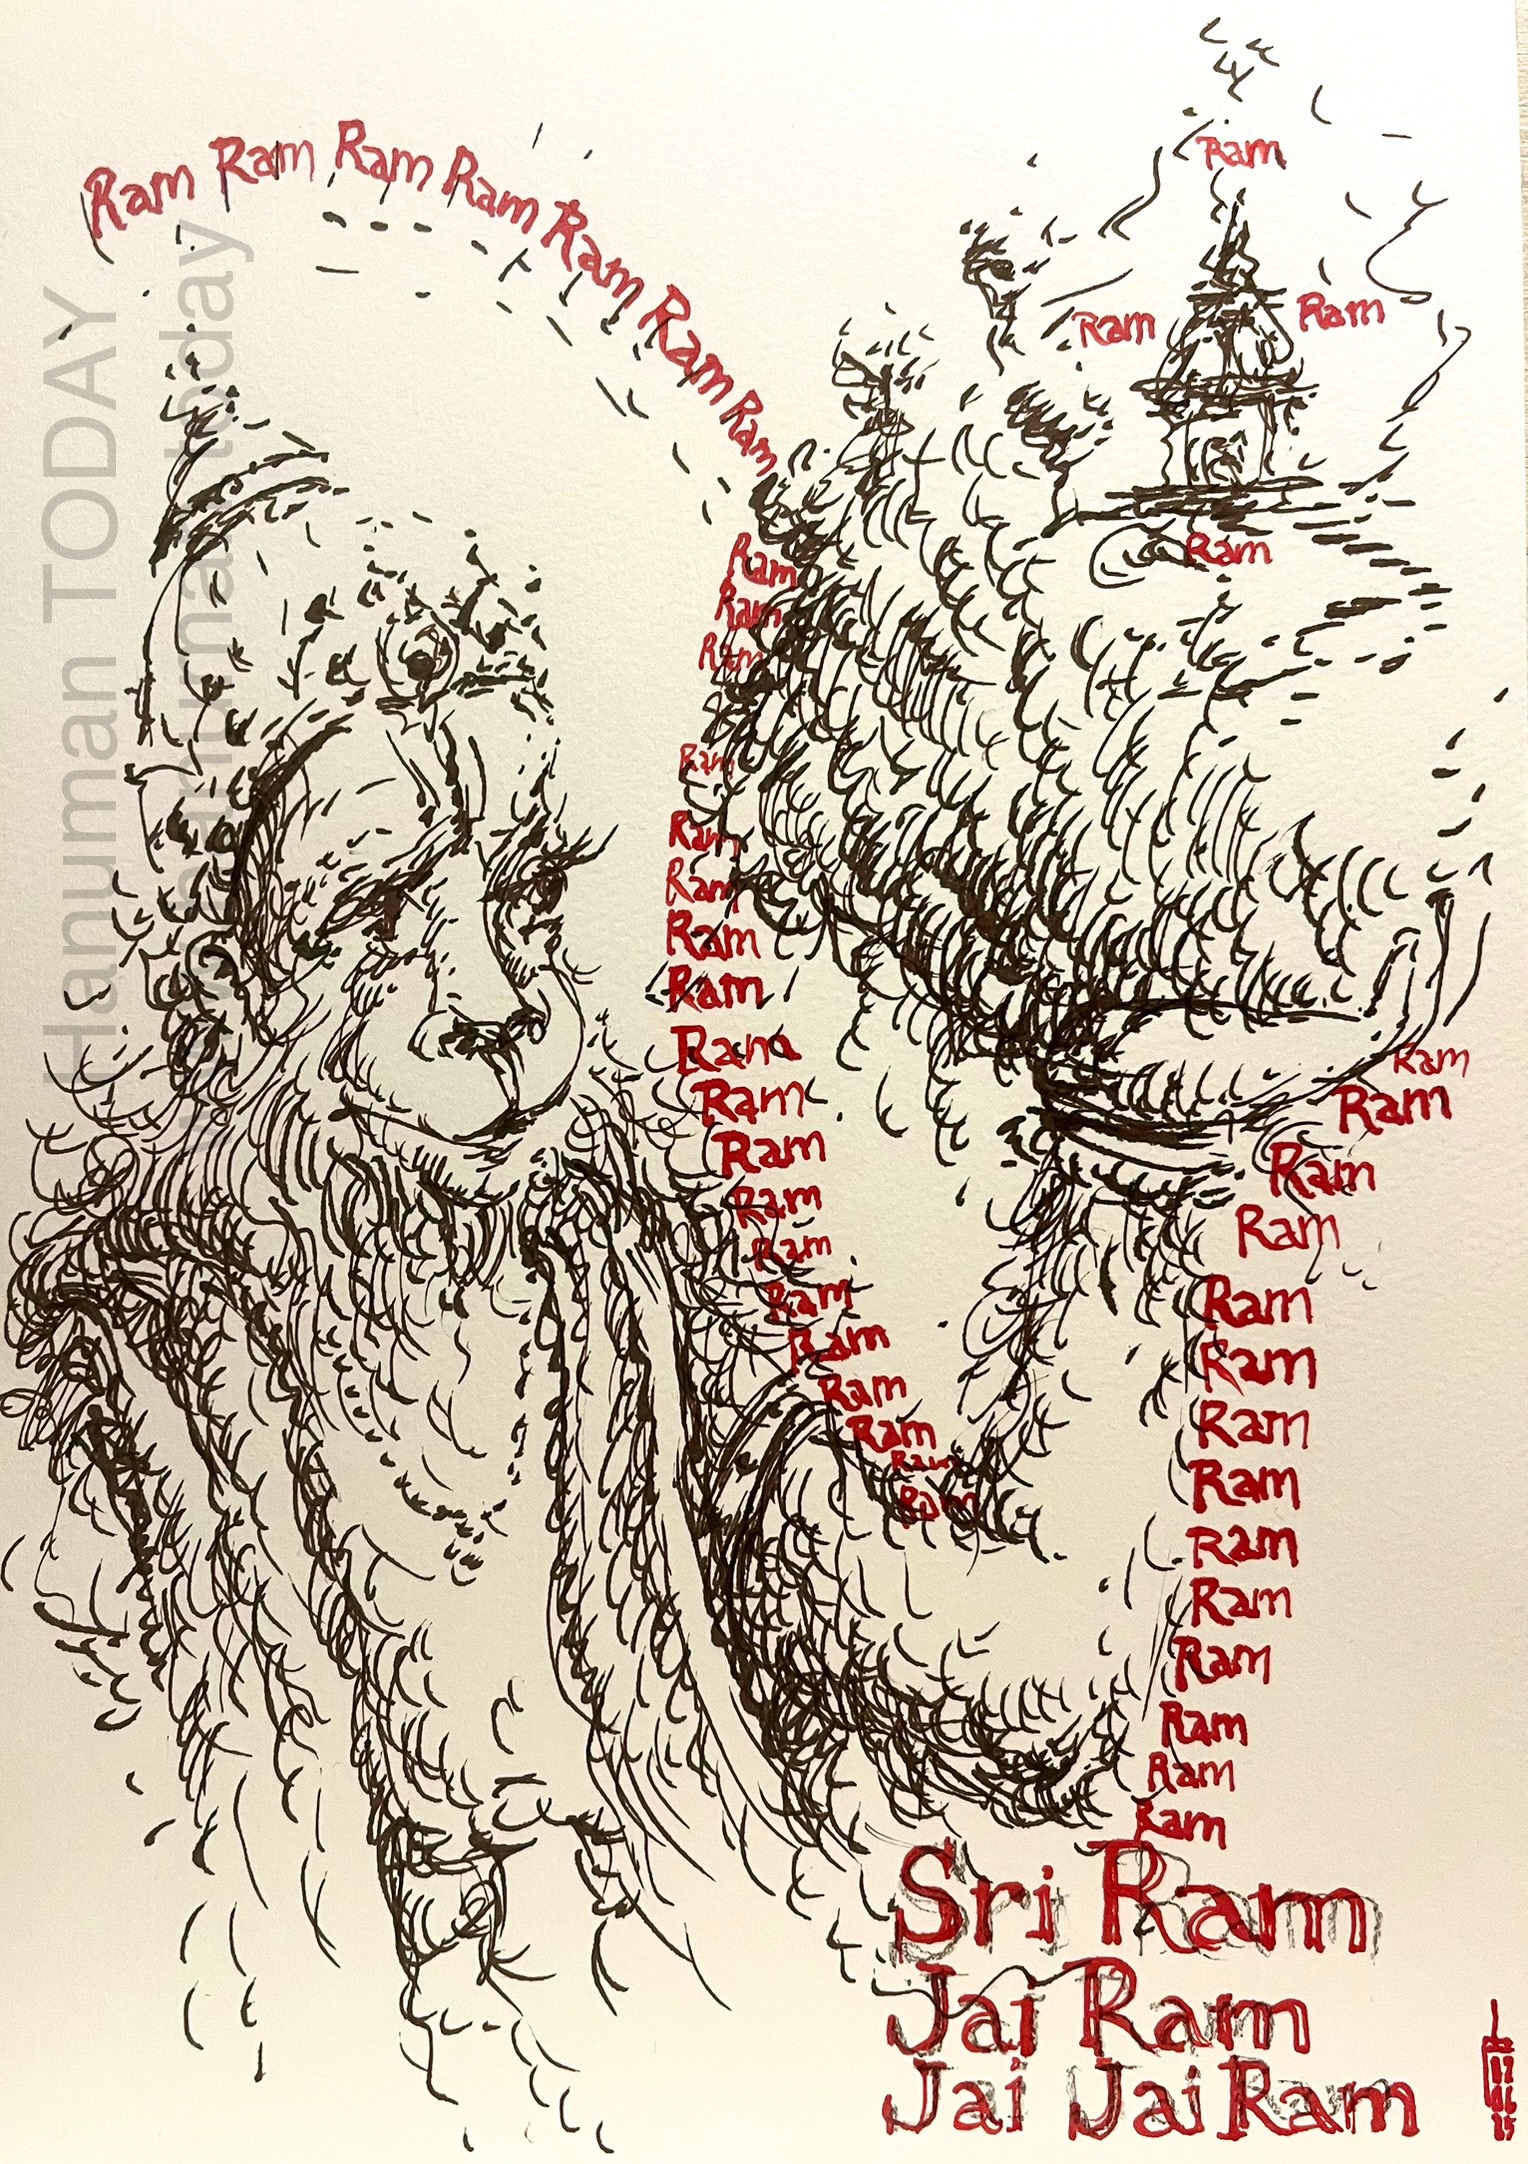 Hanuman TODAY
today
Ram Ram Ram Ram Ram Ram Ram
Ram
Ram
Ram
Ram
Ram
Ram
Ram
Ram
Ram
Ram
Ram
Ram
Ram
Ram
Ram
Ram
Ram
Ram
Ram
Ram
Ram Ram
Ram
Ram
Ram
Ram
Ram
Ram
Ram
Ram
Ram
Ram
Ram
Ram
Ram
Ram
Ram
Sri Ram
Jai Ram
Jai Jai Ram